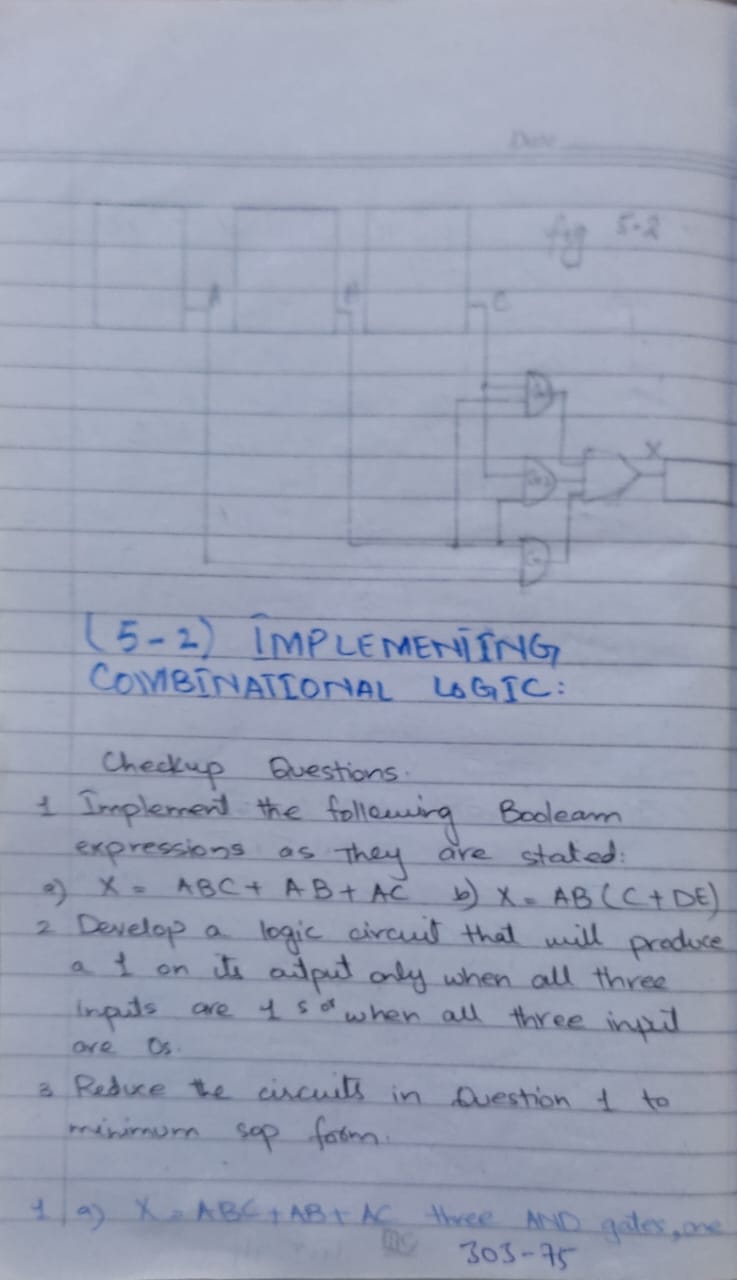 Date
fig 5.2
A B C
X
(5-2) IMPLEMENTING
COMBINATIONAL LOGIC:
Checkup Questions.
1 Implement the following Boolearn
expressions as they are stated:
a) X = ABC + AB + AC b) X = AB (C + DE)
2 Develop a logic circuit that will produce
a 1 on its output only when all three
inputs are 1 s or when all three input
are 0s.
3 Reduce the circuits in Question 1 to
minimum sop form.
1 a) X = ABC + AB + AC three AND gates, one
303-75